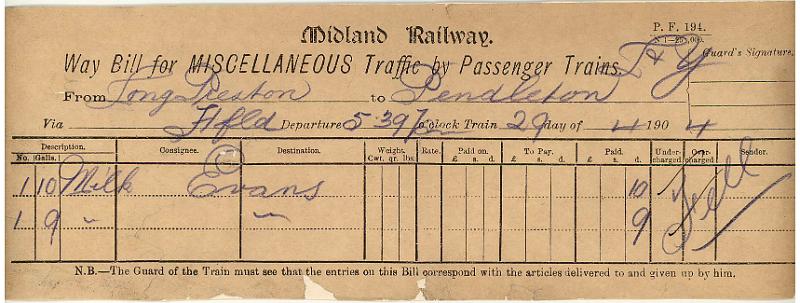 Midland Railway.
P. F. 194.
Way Bill for MISCELLANEOUS Traffic by Passenger Trains L & Y
Guard's Signature.
From Long Preston to Pendleton
Via Hfld Departure 5.39 o'clock Train 29 day of 4 1904
Description. Consignee. Destination. Weight. Rate. Paid on. To Pay. Paid. Under-charged Over-charged Sender.
No. Galls. Cwt. qr. lbs £ s. d. £ s. d. £ s. d.
©
1 10 Milk Evans 10 Fell
1 9 " " 9
N.B.—The Guard of the Train must see that the entries on this Bill correspond with the articles delivered to and given up by him.